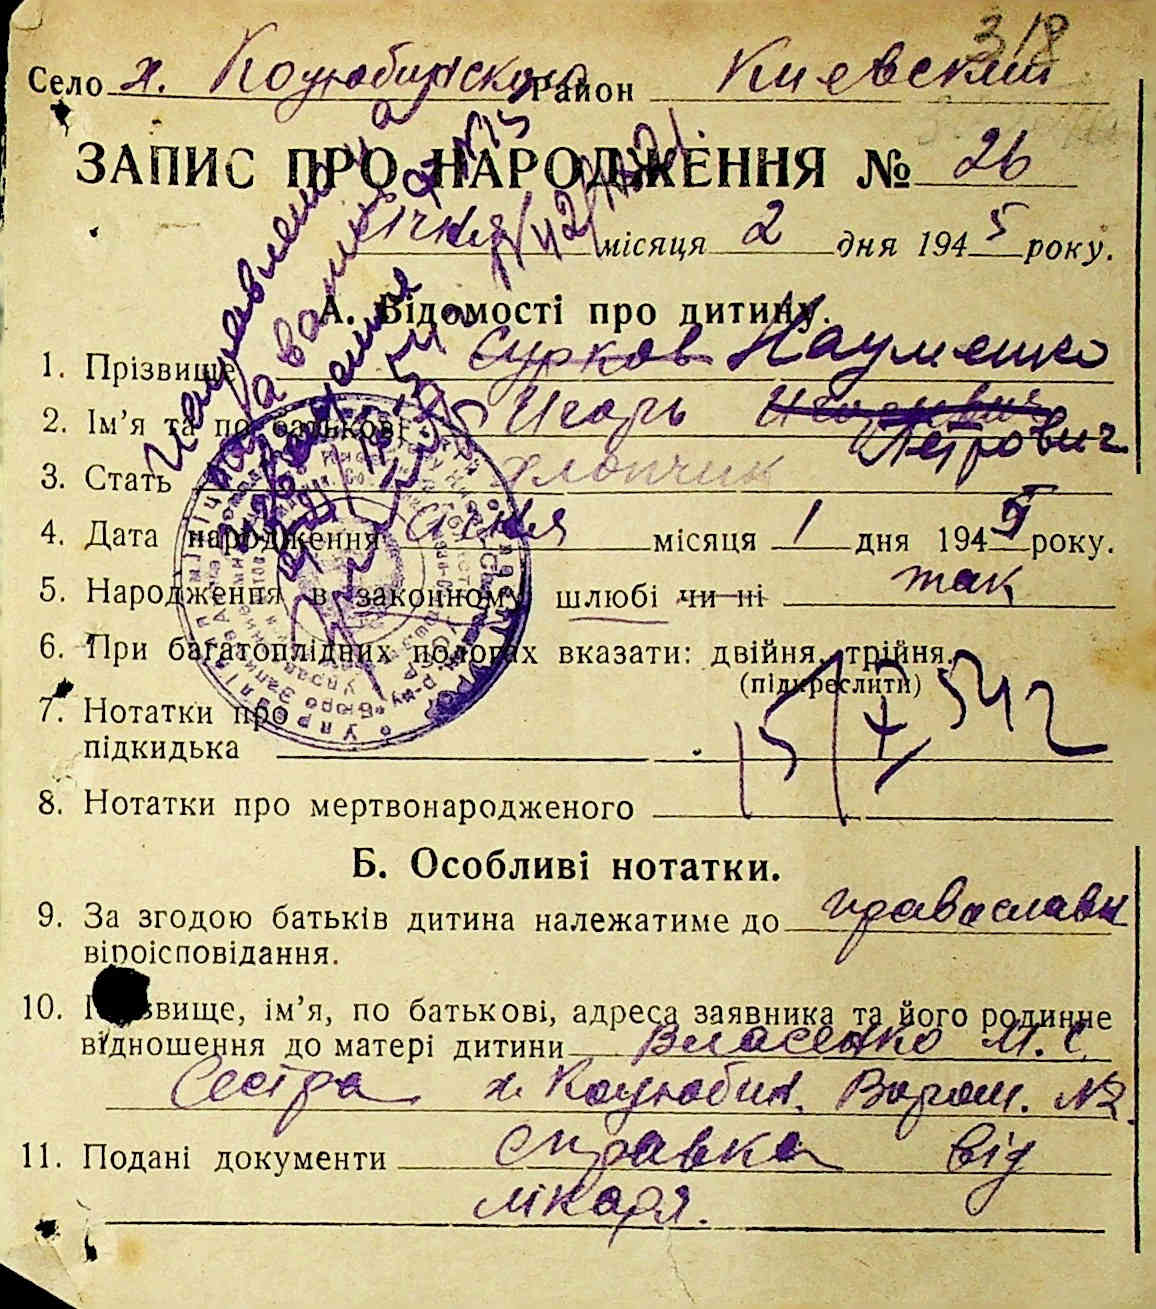 318
Село х. Коцюбинского Район Киевский
ЗАПИС ПРО НАРОДЖЕННЯ № 26
січня місяця 2 дня 1945 року.
А. Відомості про дитину.
1. Прізвище Сурков Науменко
2. Ім'я та по батькові Игорь Петрович
3. Стать хлопчик
4. Дата народження січня місяця 1 дня 1945 року.
5. Народження в законному шлюбі чи ні так
6. При багатоплідних пологах вказати: двійня, трійня.
(підкреслити)
7. Нотатки про
підкидька
8. Нотатки про мертвонародженого
Б. Особливі нотатки.
9. За згодою батьків дитина належатиме до православн
віроісповідання.
10. звище, ім'я, по батькові, адреса заявника та його родинне
відношення до матері дитини Власенко М. С.
Сестра х. Коцюбин. Ворош. №2.
11. Подані документи справка від
лікаря.